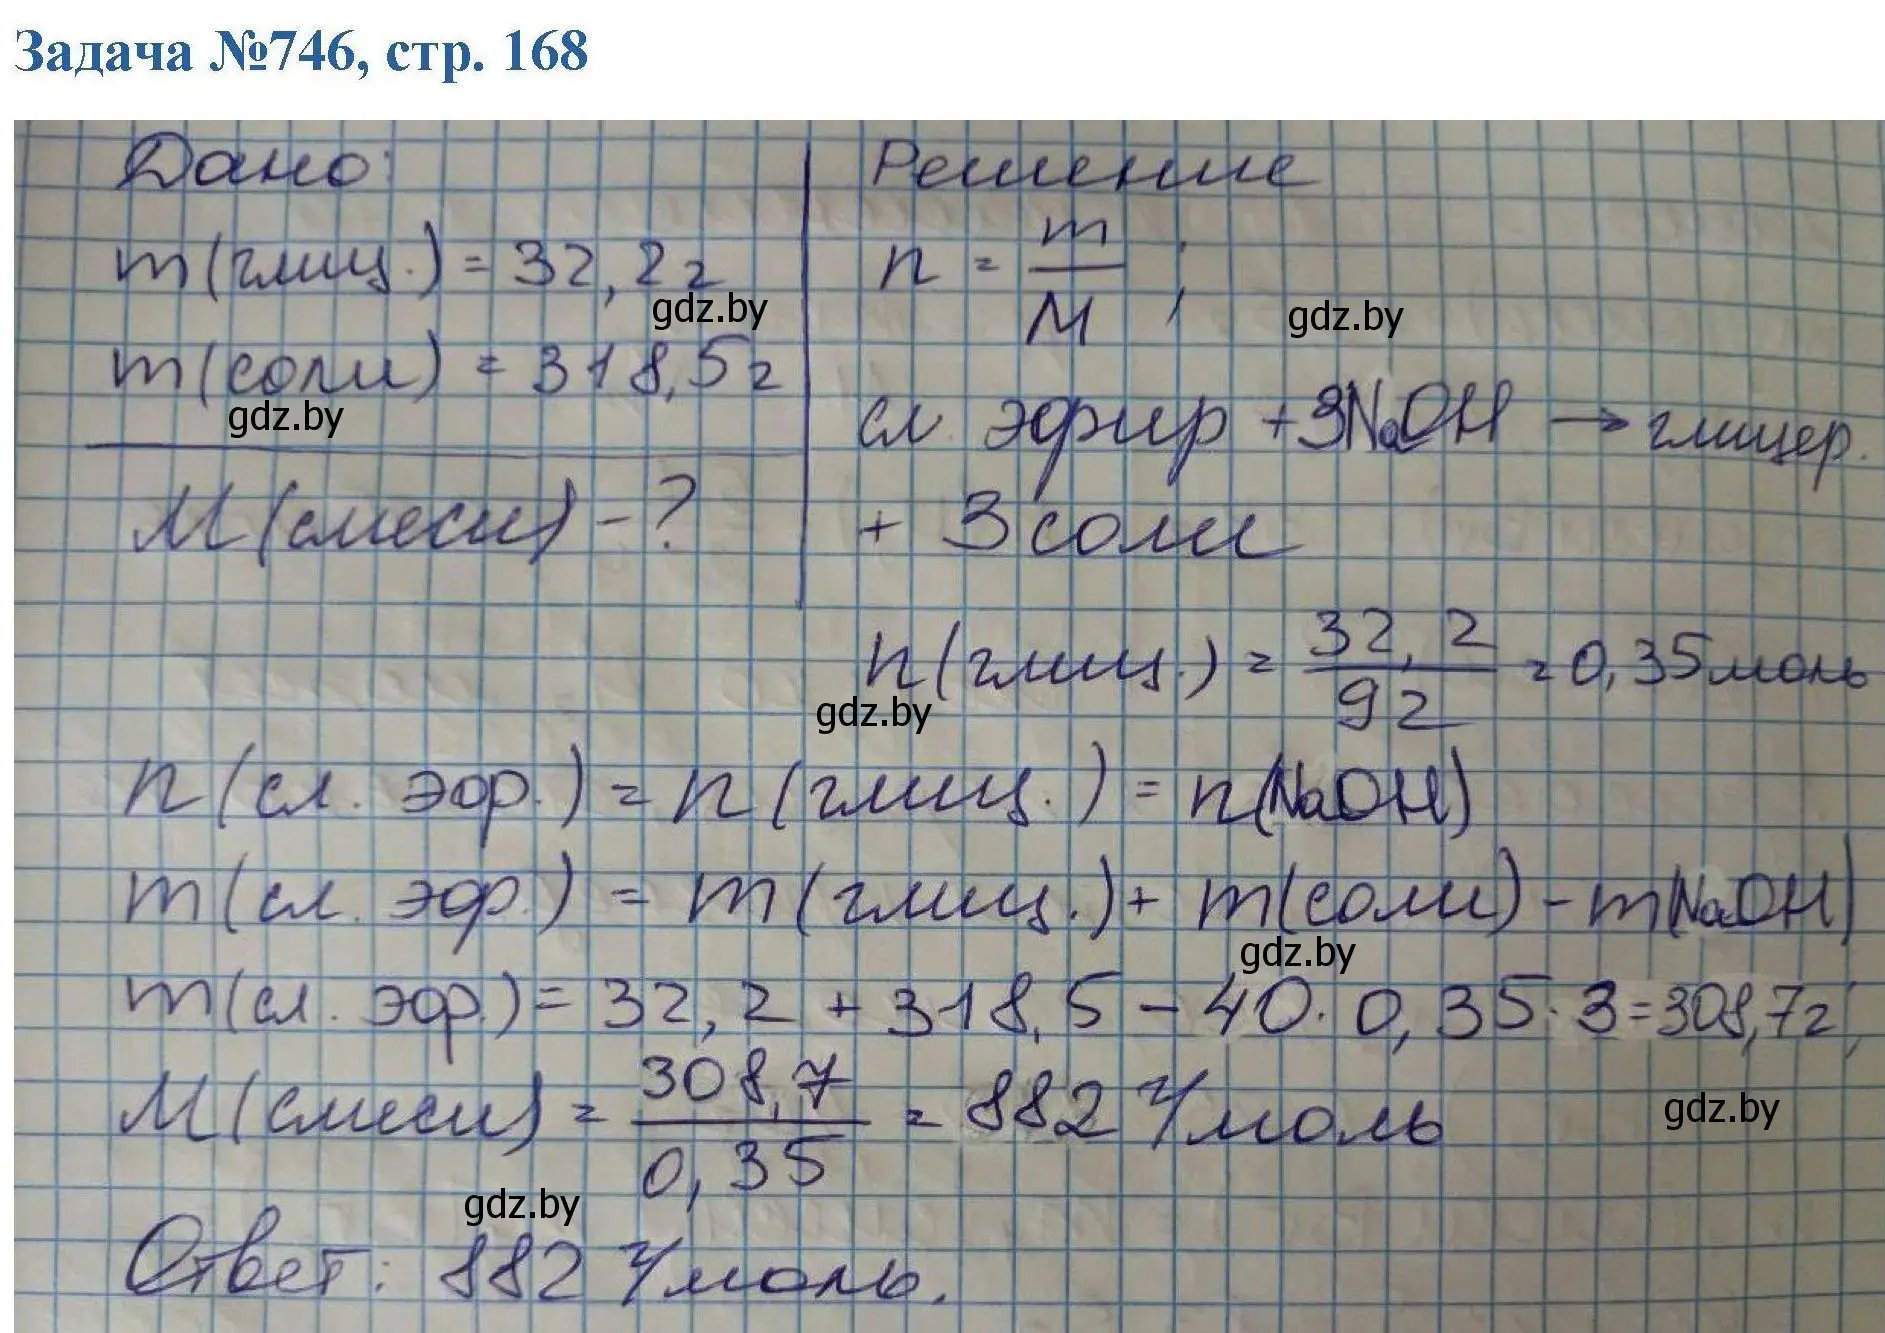 Задача №746, стр. 168
Дано:
m(глиц.) = 32,2г
gdz.by
m(соли) = 318,5г
gdz.by
М(смеси) - ?
Решение
n = m/M ;
gdz.by
сл. эфир + 3NaOH → глицер.
+ 3соли
n(глиц.) = 32,2/92 = 0,35моль
gdz.by
n(сл. эфр.) = n(глиц.) = n(NaOH)
m(сл. эфр.) = m(глиц.) + m(соли) - m(NaOH)
gdz.by
m(сл. эфр.) = 32,2 + 318,5 - 40 · 0,35 · 3 = 308,7г;
М(смеси) = 308,7/0,35 = 882 г/моль
gdz.by
gdz.by
Ответ: 882 г/моль.